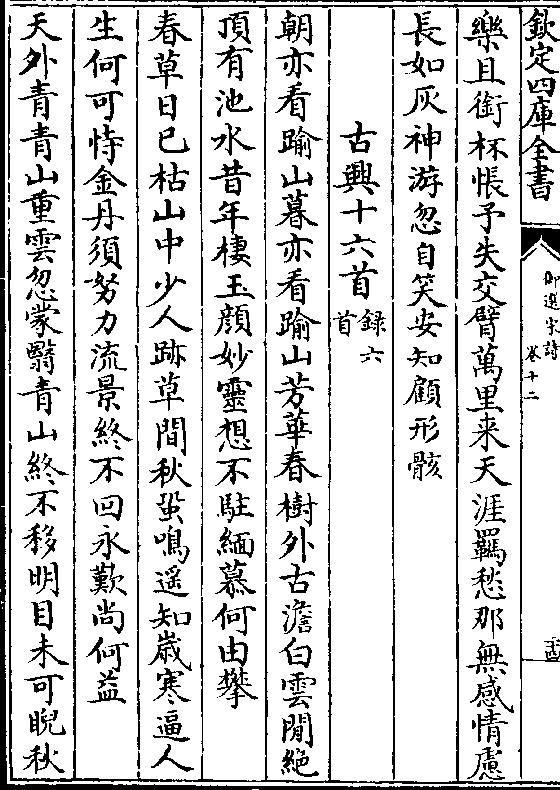 欽定四庫全書
御選宋詩 卷十二
樂且銜杯悵予失交臂萬里来天涯羈愁那無感情慮
長如灰神游忽自笑安知顧形骸
古興十六首 錄六首
朝亦看踰山暮亦看踰山芳華春樹外古澹白雲閒絶
頂有池水昔年棲玉顔妙靈想不駐緬慕何由攀
春草日已枯山中少人跡草間秋蛩鳴遥知歳寒逼人
生何可恃金丹須努力流景終不回永歎尚何益
天外青青山重雲忽蒙翳青山終不移明目未可睨秋